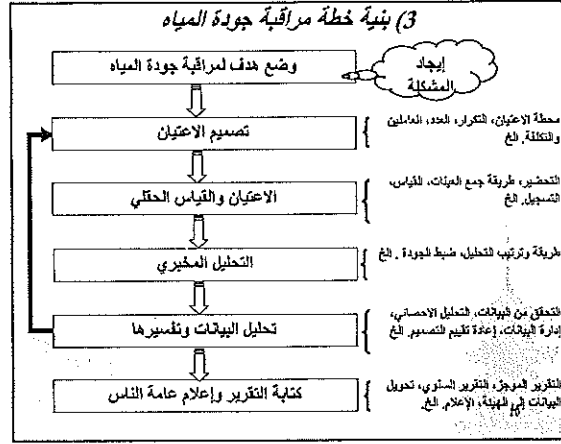 3) بنية خطة مراقبة جودة المياه
إيجاد
المشكلة
وضع هدف لمراقبة جودة المياه
تصميم الاعتيان
محطة الاعتيان، التكرار، العدد، العاملين
والتكلفة. الخ
الاعتيان والقياس الحقلي
التحضير، طريقة جمع العينات، القياس،
التسجيل. الخ
التحليل المخبري
طريقة وترتيب التحليل، ضبط الجودة . الخ
تحليل البيانات وتفسيرها
التحقق من البيانات، التحليل الاحصائي،
إدارة البيانات، إعادة تقييم التصميم. الخ
كتابة التقرير وإعلام عامة الناس
التقرير الموجز، التقرير السنوي، تحويل
البيانات إلى الهيئة، الإعلام. الخ.